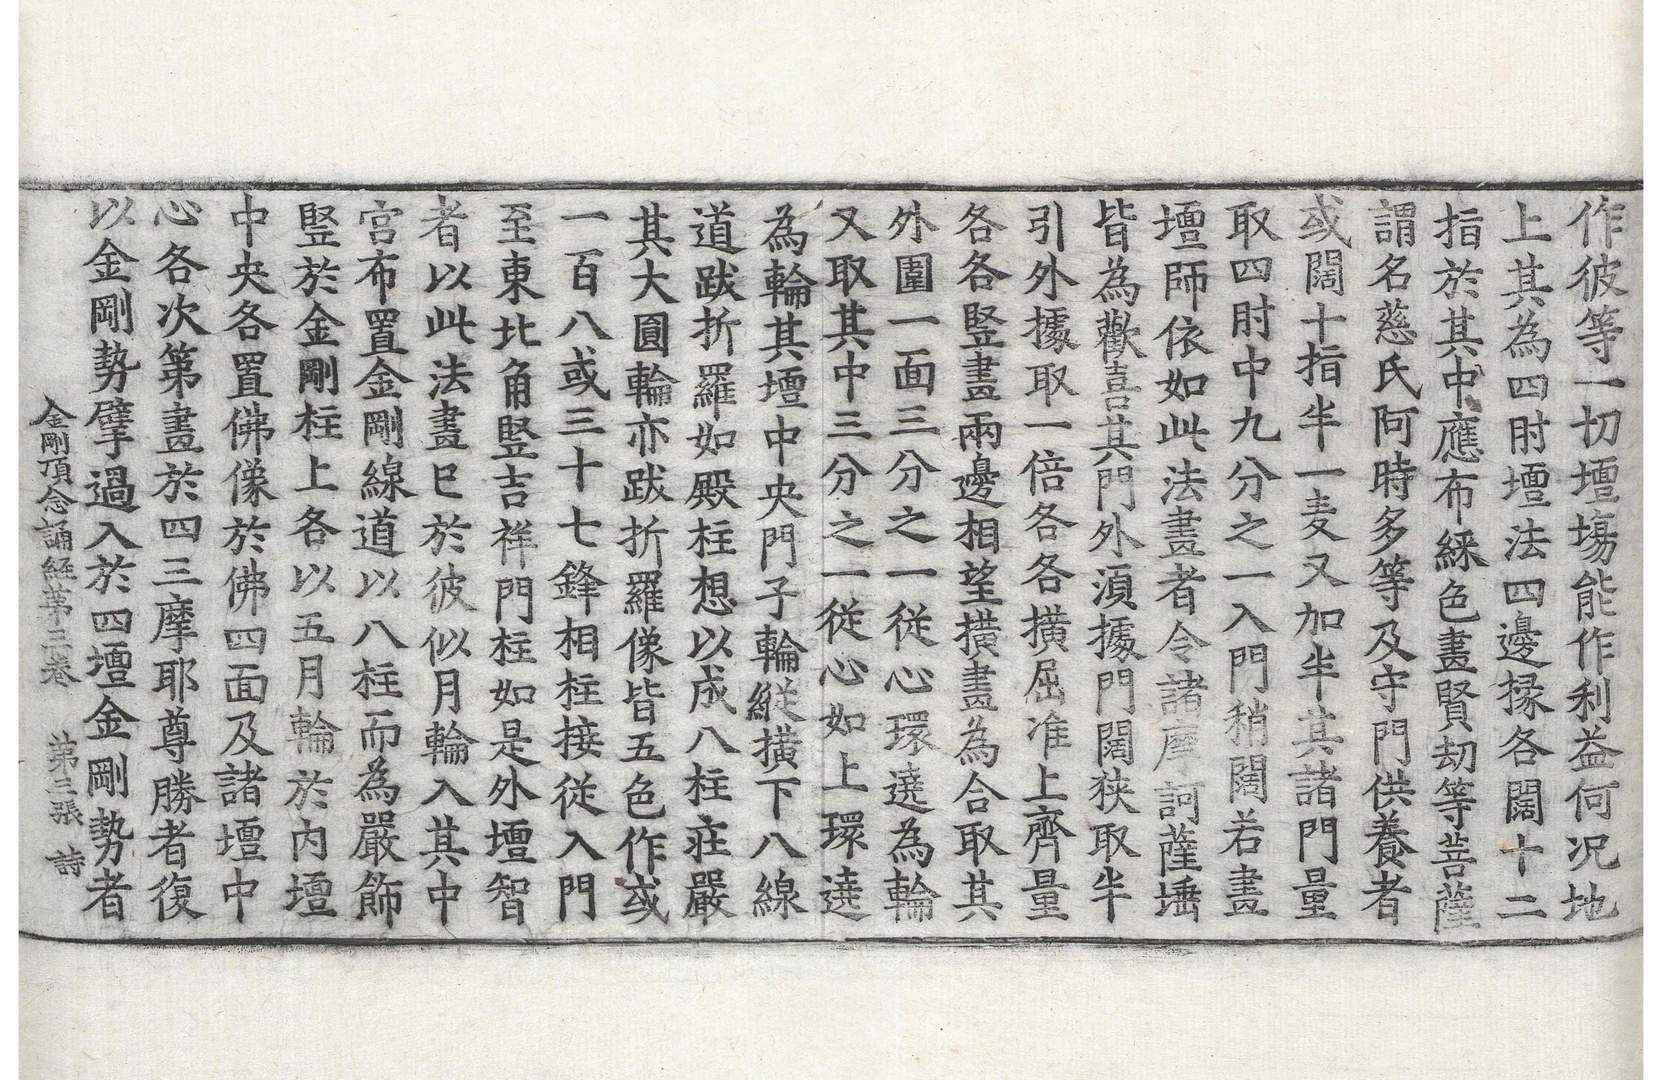 作彼等一切壇場能作利益何况地
上其為四肘壇法四邊掾各闊十二
指於其中應布綵色畫賢劫等菩薩
謂名慈氏阿時多等及守門供養者
或闊十指半一麦又加半其諸門量
取四肘中九分之一入門稍闊若畫
壇師依如此法畫者令諸摩訶薩埵
皆為歡喜其門外湏據門闊狹取半
引外據取一倍各各撗屈准上齊量
各各竪畫兩邊相望撗畫為合取其
外圍一面三分之一從心環遶為輪
又取其中三分之一從心如上環遶
為輪其壇中央門子輪縱撗下八線
道跋折羅如殿柱想以成八柱莊嚴
其大圓輪亦跋折羅像皆五色作或
一百八或三十七鋒相柱接從入門
至東北角竪吉祥門柱如是外壇智
者以此法畫已於彼似月輪入其中
宮布置金剛線道以八柱而為嚴飾
竪於金剛柱上各以五月輪於内壇
中央各置佛像於佛四面及諸壇中
心各次第畫於四三摩耶尊勝者復
以金剛勢擘過入於四壇金剛勢者
金剛頂念誦經第二卷 第三張 詩